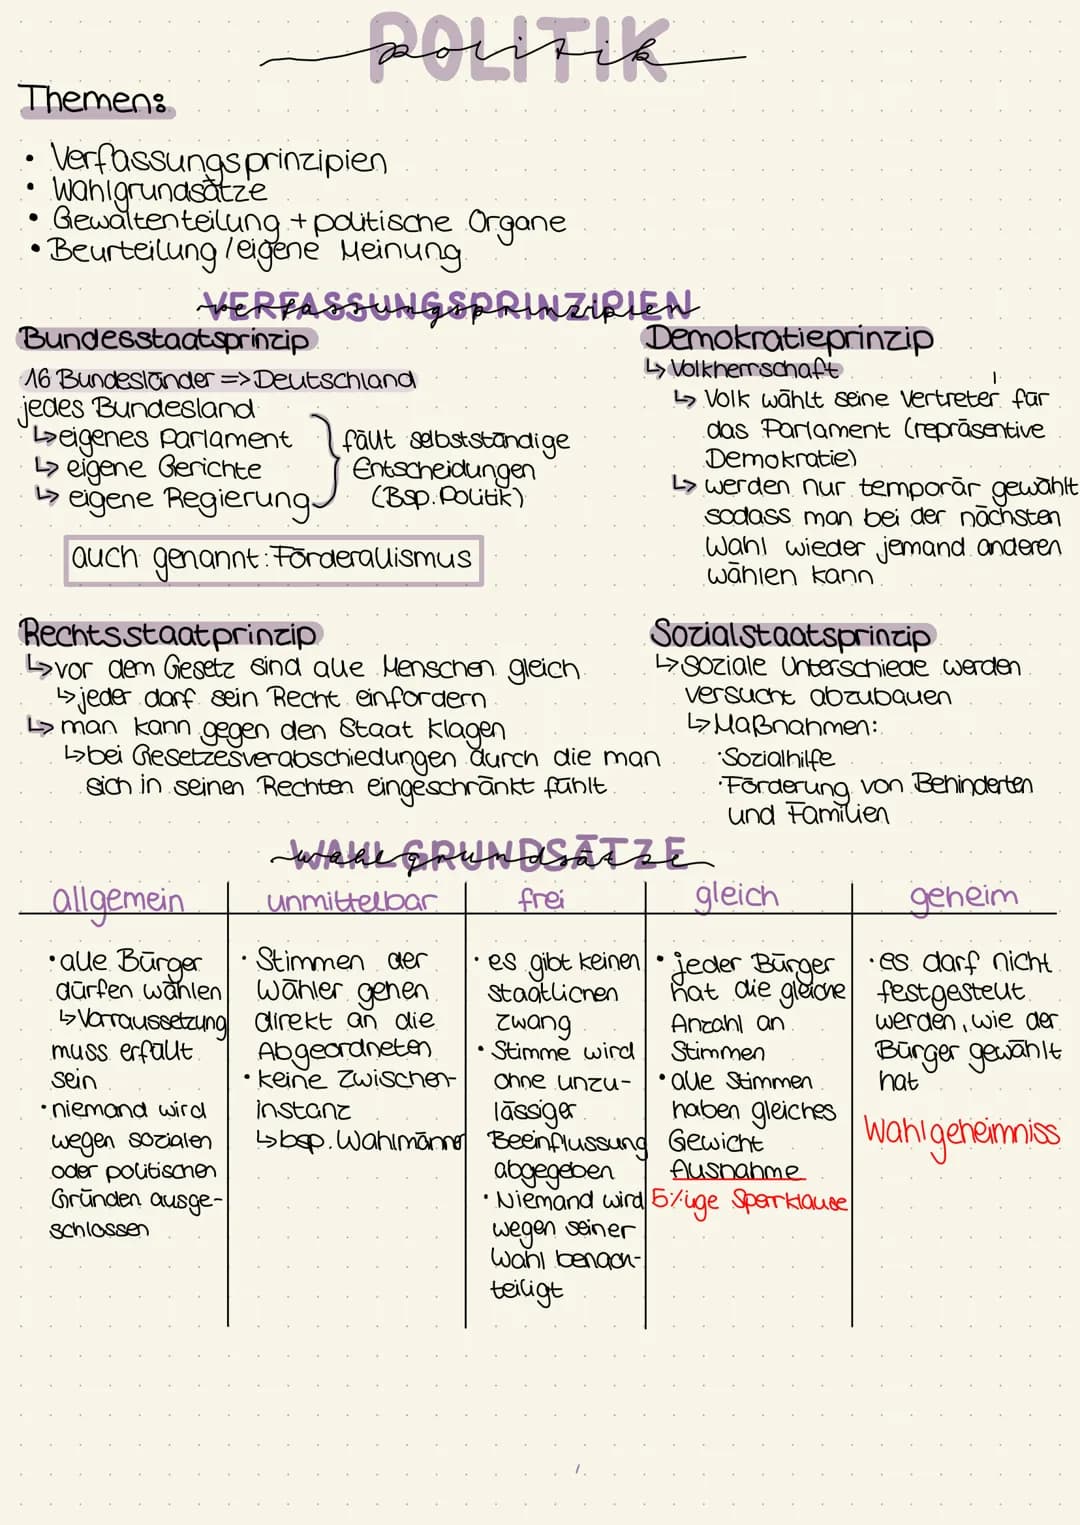 POLITIK
politik
Themen:
• Verfassungsprinzipien
• Wahlgrundsätze
• Gewaltenteilung + politische Organe
• Beurteilung / eigene Meinung
VERFASSUNGSPRINZIPIEN
verfassungsprinzipien
Bundesstaatsprinzip
16 Bundesländer => Deutschland
jedes Bundesland
↳ eigenes Parlament
↳ eigene Gerichte
↳ eigene Regierung
fällt selbstständige
Entscheidungen
(Bsp. Politik)
auch genannt: Förderallismus
Demokratieprinzip
↳ Volkherrschaft
↳ Volk wählt seine Vertreter für
das Parlament (repräsentive
Demokratie)
↳ werden nur temporär gewählt
sodass man bei der nächsten
Wahl wieder jemand anderen
wählen kann
Rechtsstaatprinzip
↳ vor dem Gesetz sind alle Menschen gleich
↳ jeder darf sein Recht einfordern
↳ man kann gegen den Staat klagen
↳ bei Gesetzesverabschiedungen durch die man
sich in seinen Rechten eingeschränkt fühlt
Sozialstaatsprinzip
↳ Soziale Unterschiede werden
versucht abzubauen
↳ Maßnahmen:
· Sozialhilfe
· Förderung von Behinderten
und Familien
WAHLGRUNDSÄTZE
wahlgrundsätze
allgemein
• alle Bürger
dürfen wählen
↳ Vorraussetzung
muss erfüllt
sein
• niemand wird
wegen sozialen
oder politischen
Gründen ausge-
schlossen
unmittelbar
• Stimmen der
Wähler gehen
direkt an die
Abgeordneten
• keine Zwischen-
instanz
↳ bsp. Wahlmänner
frei
• es gibt keinen
staatlichen
Zwang
• Stimme wird
ohne unzu-
lässiger
Beeinflussung
abgegeben
• Niemand wird
wegen seiner
Wahl benach-
teiligt
gleich
• jeder Bürger
hat die gleiche
Anzahl an
Stimmen
• alle Stimmen
haben gleiches
Gewicht
Ausnahme
5%ige Sperrklause
geheim
• es darf nicht
festgestellt
werden, wie der
Bürger gewählt
hat
Wahlgeheimniss